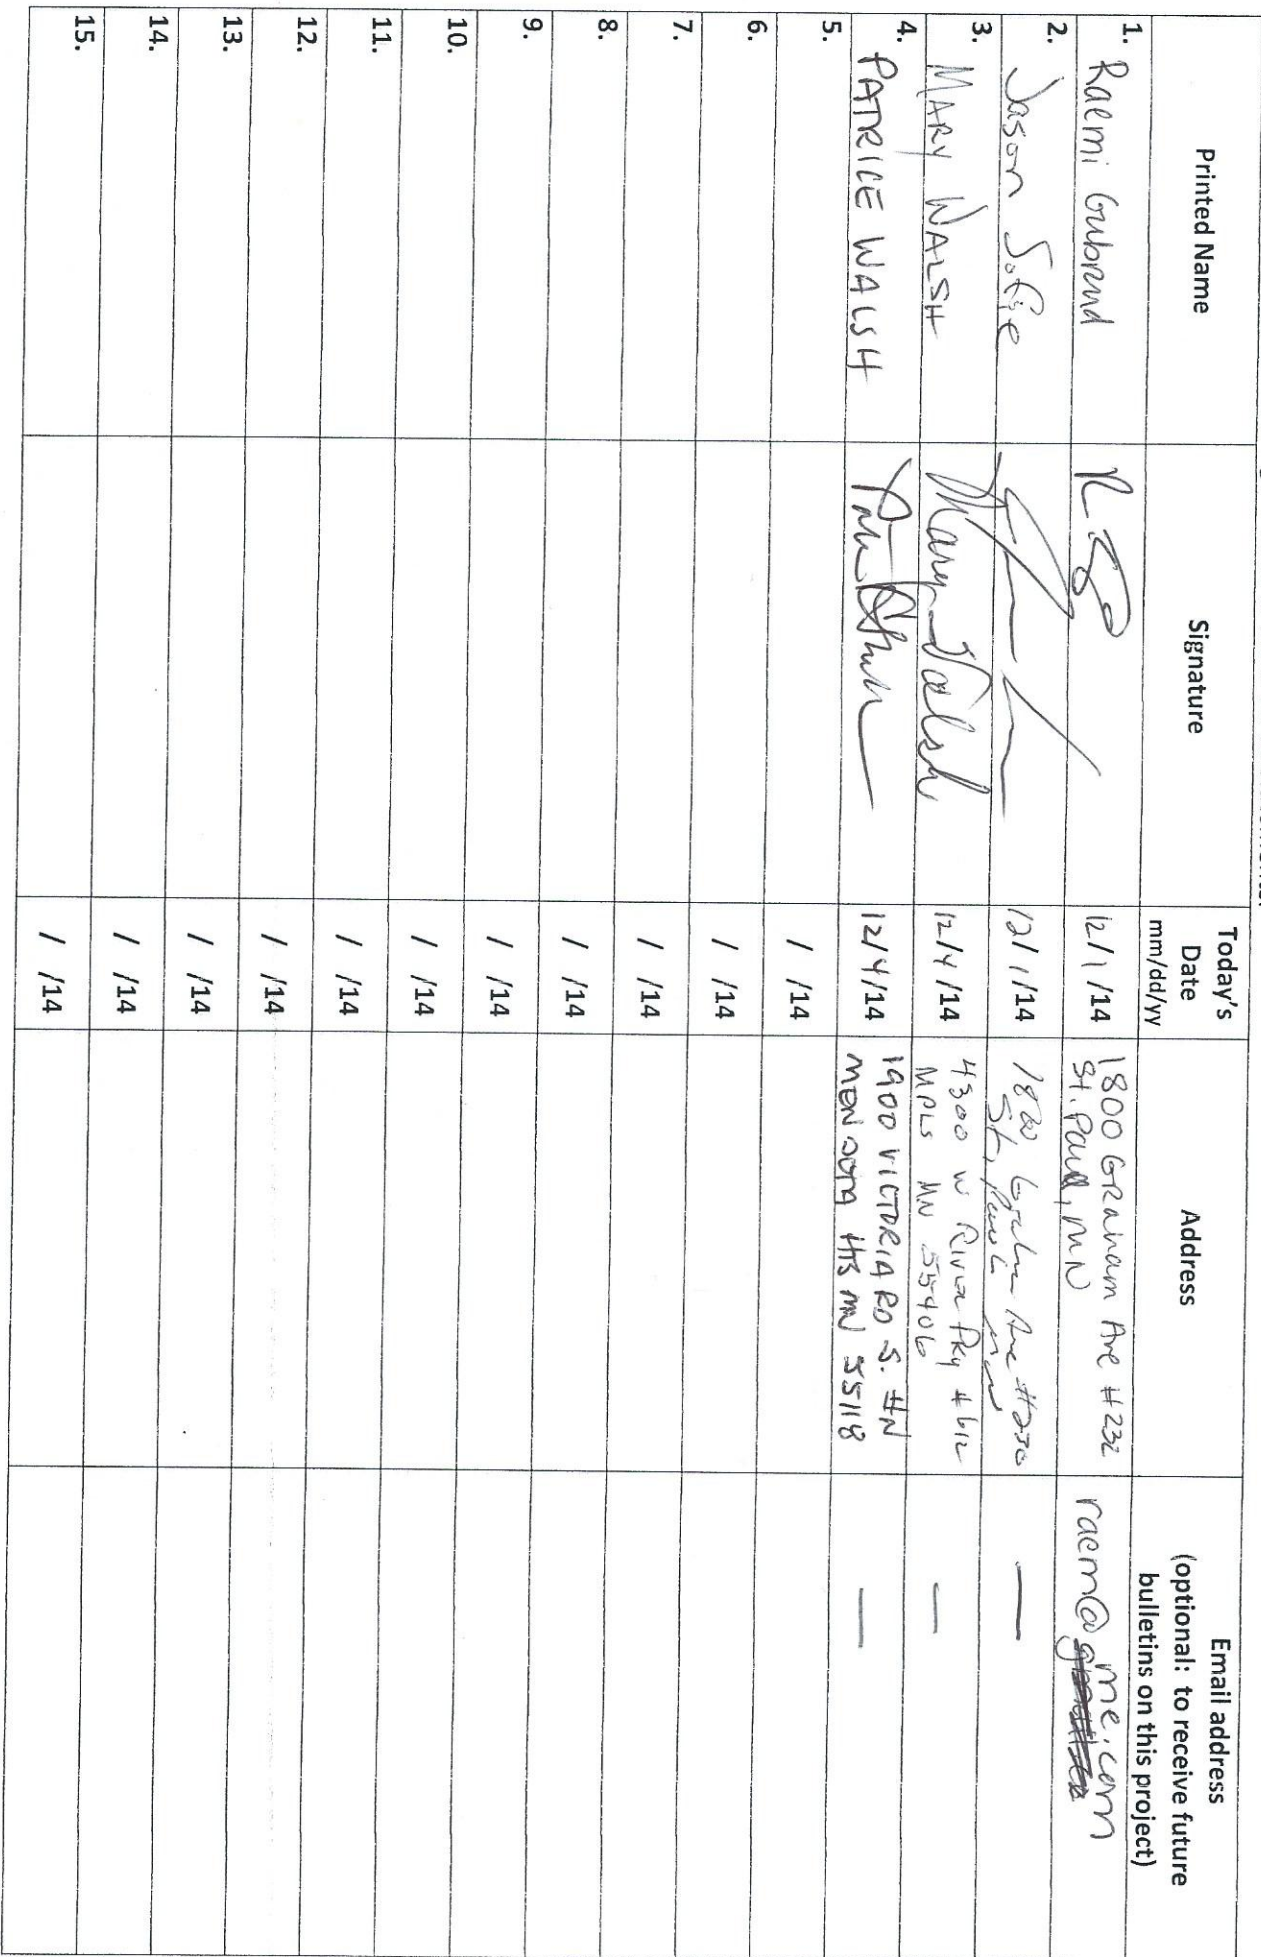 Printed Name
Signature
Today's
Date
mm/dd/yy
Address
Email address
(optional: to receive future
bulletins on this project)
1. Raemi Gubrud
12/1/14
1800 Graham Ave #232
St. Paul, MN
raem@me.com
2. Jason
12/1/14
St. Paul MN
—
3. MARY WALSH
Mary Walsh
12/4/14
4300 W River Pky #612
MPLS MN 55406
—
4. PATRICE WALSH
12/4/14
1900 VICTORIA RD S. #N
MENDOTA HTS MN 55118
—
5. / /14
6. / /14
7. / /14
8. / /14
9. / /14
10. / /14
11. / /14
12. / /14
13. / /14
14. / /14
15. / /14